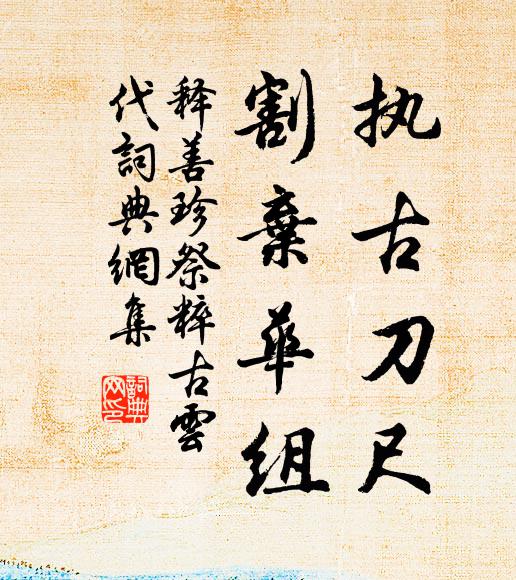 执古刀尺
割棄華组
释善珍祭粹古雲
代詞典網集
詞典
网印